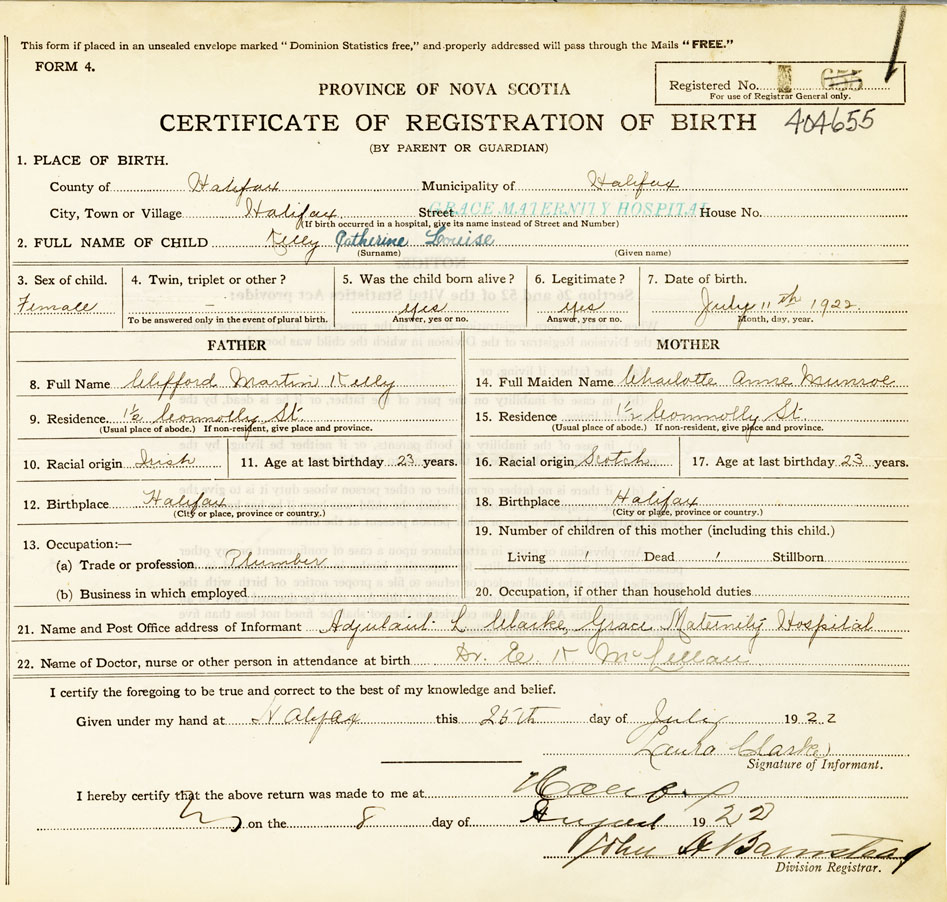 This form if placed in an unsealed envelope marked "Dominion Statistics free," and properly addressed will pass through the Mails "FREE."
FORM 4.
Registered No. 655
For use of Registrar General only.
PROVINCE OF NOVA SCOTIA
CERTIFICATE OF REGISTRATION OF BIRTH 404655
(BY PARENT OR GUARDIAN)
1. PLACE OF BIRTH.
County of Halifax Municipality of Halifax
City, Town or Village Halifax Street GRACE MATERNITY HOSPITAL House No.
(If birth occurred in a hospital, give its name instead of Street and Number)
2. FULL NAME OF CHILD Kelly Catherine Louise
(Surname) (Given name)
3. Sex of child. 4. Twin, triplet or other? 5. Was the child born alive? 6. Legitimate? 7. Date of birth.
Female – yes yes July 11th 1922.
To be answered only in the event of plural birth. Answer, yes or no. Answer, yes or no. Month, day, year.
FATHER MOTHER
8. Full Name Clifford Martin Kelly 14. Full Maiden Name Charlotte Anne Munroe
9. Residence. 1½ Connolly St. 15. Residence 1½ Connolly St.
(Usual place of abode.) If non-resident, give place and province. (Usual place of abode.) If non-resident, give place and province.
10. Racial origin Irish 11. Age at last birthday 23 years. 16. Racial origin Scotch 17. Age at last birthday 23 years.
12. Birthplace Halifax 18. Birthplace Halifax
(City or place, province or country.) (City or place, province or country.)
13. Occupation:— 19. Number of children of this mother (including this child.)
(a) Trade or profession Plumber Living 1 Dead 1 Stillborn
(b) Business in which employed 20. Occupation, if other than household duties
21. Name and Post Office address of Informant Adjutant L. Clarke, Grace Maternity Hospital
22. Name of Doctor, nurse or other person in attendance at birth Dr. E. K McLellan
I certify the foregoing to be true and correct to the best of my knowledge and belief.
Given under my hand at Halifax this 25th day of July 1922
Laura Clarke
Signature of Informant.
I hereby certify that the above return was made to me at Halifax
on the 8 day of August 1922
John A Barnstead
Division Registrar.